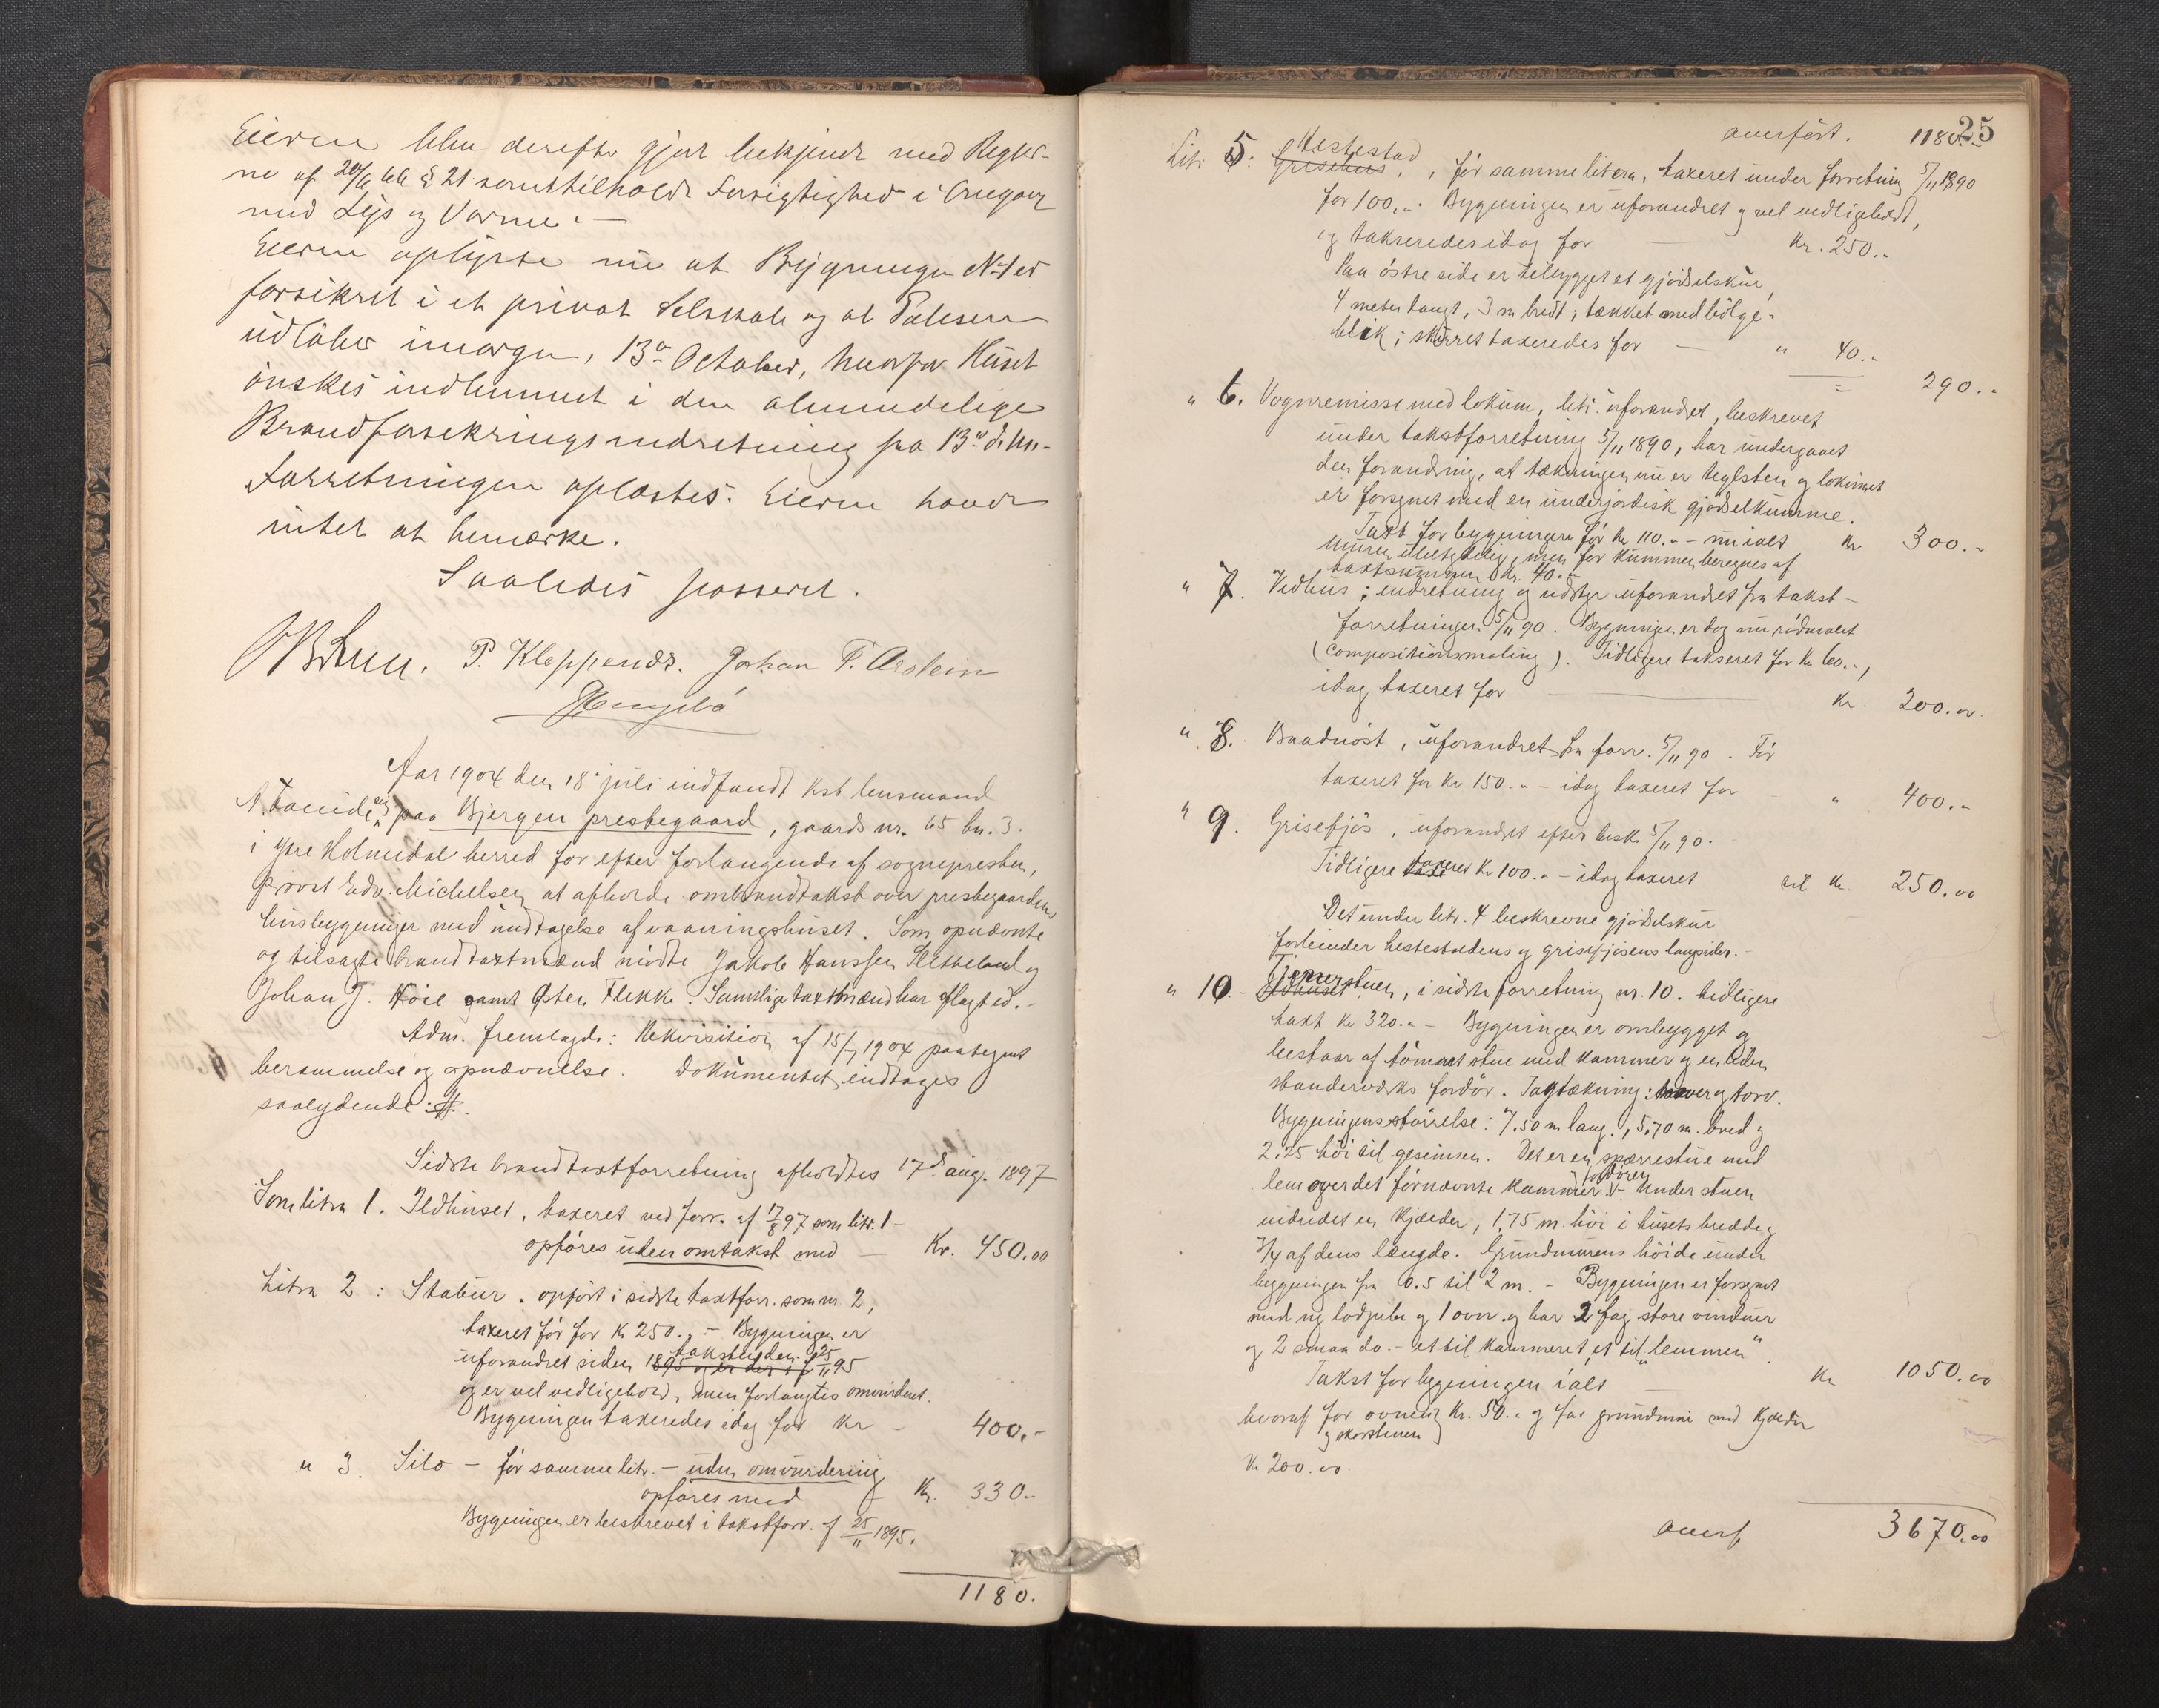 Eieren blev derefter gjort bekjendt med Regler-
ne af 20/6 66 § 21 samt tilholdt Forsigtighed i Omgang
med Lys og Varme. —
Eieren oplyste nu at Bygningen No 1 er
forsikret i et privat Selskab og at Polisen
udlöber imorgen, 13de October, hvorfor Huset
önskes indlemmet i den almindelige
Brandforsekringsindretning fra 13de ds. 
Forretningen oplæstes. Eieren havde
intet at bemærke.
Saaledes passeret.
P. Kleppenes. Johan T. Arstein
Aar 1904 den 18 juli indfandt kst. lensmand
sig paa Bjergen prestegaard, gaards nr. 65 bn. 3.
i Ytre Holmedal herred for efter forlangende af sognepresten,
provst Edv. Michelsen at afholde ombrandtakst over prestegaardens
husbygninger med undtagelse af vaaningshuset. Som opnævnte
og tilsagte brandtaxtmænd mödte Jakob Hanssen Sletteland og
Johan J. Höie samt Østen Flekke. Samtlige taxtmænd har aflagt ed. -
Adm. fremlagde: Rekvisition af 15/7 1904 paategnet
berammelse og opnævnelse. Dokumentet indtages
saalydende: #.
Sidste brandtaxtforretning afholdtes 17de aug. 1897
Som litra 1. Ildhuset, taxeret ved forr. af 17/8 97 som litr. 1 -
opföres uden omtakst med — Kr. 450.00
Litra 2 : Stabur. opfört i sidste taxtforr. som nr. 2,
taxeret för for Kr 250.,. - Bygningen er
taksten den 25
uforandret siden 1895 og er der i f 11 95
og er vel vedligehold, men forlangtes omvurderet.
Bygningen taxeredes idag for Kr - 400.-
" 3. Silo - för samme litr. - uden omvurdering
opföres med Kr. 330.-
Bygningen er beskrevet i takstforr. af 25/11 1895.
1180.
25
overfört. 1180.-
Hestestad
Litr 5: Grisehus, för samme litera, taxeret under forretning 5/11 1890
for 100.-. Bygningen er uforandret og vel vedligeholdt,
og takseredes idag for — Kr. 250.-
Paa östre side er tilbygget et gjödselskur,
4 meter langt, 3 m bredt; tækket med bölge-
blik; skurret taxeredes for — " 40.-
= 290.-
" 6. Vognremisse med lokum, litr. uforandret, beskrevet
under takstforretning 5/11 1890, har undergaaet
den forandring, at tækningen nu er teglsten og lokumet
er forsynet med en underjordisk gjödselkumme.
Taxt for bygningen för Kr 110.- - nu ialt Kr 300.-
Muren ubetydelig, men for kummen beregnes af
taxtsummen Kr. 40.-
" 7. Vedhus; indretning og udstyr uforandret fra takst-
forretningen 5/11 90. Bygningen er dog nu rödmalet
(compositionsmaling). Tidligere takseret for Kr 60.-,
idag taxeret for — Kr. 200.00.
" 8. Baadnöst, uforandret fra forr. 5/11 90. För
taxeret for Kr 150.- - idag taxeret for " 400.-
" 9. Grisefjös, uforandret efter besk. 5/11 90.
Tidligere taxeret Kr 100.- - idag taxeret til Kr. 250.00
Det under litr. 4 beskrevne gjödselskur
forbinder hestestaldens og grisefjösens langsider. -
Tjenerstuen
" 10. Ildhuset, i sidste forretning nr. 10. tidligere
taxt Kr 320.- - Bygningen er ombygget og
bestaar af tömret stue med kammer og en liden
standerværks fordör. Tagtækning: næver og torv.
Bygningens störrelse: 7.50 m lang, 5.70 m. bred og
2.25 höi til gesimsen. Det er en sperrestue med
og fordören
lem over det förnævnte kammer. Under stuen
indredet en Kjælder, 1.75 m. höi i husets bredde og
3/4 af dens længde. Grundmurens höide under
bygningen fra 0.5 til 2 m. - Bygningen er forsynet
med ny lodpibe og 1 ovn og har 2 fag store vinduer
og 2 smaa do. - et til kammeret, et til „lemmen“.
Takst for bygningen ialt — Kr 1050.00
hvoraf for ovnen Kr. 50.- og for grundmur med Kjælder
og skorstenen
Kr. 200.00.
overf. 3670.00